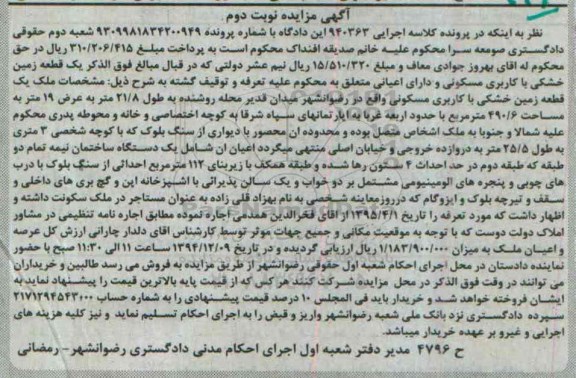 آگهی مزایده نوبت دوم
نظر به اینکه در پرونده کلاسه اجرایی ۹۴۰۳۶۳ این دادگاه با شماره پرونده ۹۳۰۹۹۸۱۸۳۴۲۰۰۹۴۹ شعبه دوم حقوقی
دادگستری صومعه سرا محکوم علیه خانم صدیقه افنداک محکوم است به پرداخت مبلغ ۳۱۰/۲۰۶/۴۱۵ ریال در حق
محکوم له اقای بهروز جوادی معاف و مبلغ ۱۵/۵۱۰/۳۲۰ ریال نیم عشر دولتی که در قبال مبالغ فوق الذکر یک قطعه زمین
خشکی با کاربری مسکونی و دارای اعیانی متعلق به محکوم علیه تعرفه و توقیف گشته به شرح ذیل: مشخصات ملک یک
قطعه زمین خشکی با کاربری مسکونی واقع در رضوانشهر میدان قدیر محله روشنده به طول ۲۱/۸ متر به عرض ۱۹ متر به
مساحت ۴۹۰/۶ مترمربع با حدود اربعه غربا به اپارتمانهای سپاه شرقا به کوچه اختصاصی و خانه و محوطه پدری محکوم
علیه شمالا و جنوبا به ملک اشخاص متصل بوده و محدوده ان محصور با دیواری از سنگ بلوک که با کوچه شخصی ۳ متری
به طول ۲۵/۵ متر به دروازده خروجی و خیابان اصلی منتهی میگردد اعیان ان شامل یک دستگاه ساختمان نیمه تمام دو
طبقه که طبقه دوم در حد احداث ۴ ستون رها شده و طبقه همکف با زیربنای ۱۱۲ مترمربع احداثی از سنگ بلوک با درب
های چوبی و پنجره های الومینیومی مشتمل بر دو خواب و یک سالن پذیرائی با اشپزخانه اپن و گچ بری های داخلی و
سقف و تیرچه بلوک و ایزوگام که درروزمعاینه شخصی به نام بهزاد قلی زاده به عنوان مستاجر در ملک سکونت داشته و
اظهار داشت که مورد تعرفه را تاریخ ۱۳۹۵/۴/۱ از اقای فخرالدین همدمی اجاره نموده مطابق اجاره نامه تنظیمی در مشاور
املاک دولت دوست که با توجه به موقعیت مکانی و جمیع جهات موثر توسط کارشناس اقای دلدار چارانی ارزش کل عرصه
و اعیان ملک به میزان ۱/۱۸۳/۹۰۰/۰۰۰ ریال ارزیابی گردیده و در تاریخ ۱۳۹۴/۱۲/۰۹ ساعت ۱۱ الی ۱۱:۳۰ صبح با حضور
نماینده دادستان در محل اجرای احکام شعبه اول حقوقی رضوانشهر از طریق مزایده به فروش می رسد طالبین و خریداران
می توانند در وقت فوق الذکر در محل مزایده شرکت کنند هرکس که از قیمت پایه بالاترین قیمت را پیشنهاد نماید به
ایشان فروخته خواهد شد و خریدار باید فی المجلس ۱۰ درصد قیمت پیشنهادی را به شماره حساب ۲۱۷۱۲۹۴۵۴۳۰۰۰
سپرده دادگستری نزد بانک ملی شعبه رضوانشهر واریز و قبض را به اجرای احکام تسلیم نماید و نیز کلیه هزینه های
اجرایی و غیرو بر عهده خریدار میباشد.
ح ۴۷۹۶ مدیر دفتر شعبه اول اجرای احکام مدنی دادگستری رضوانشهر- رمضانی